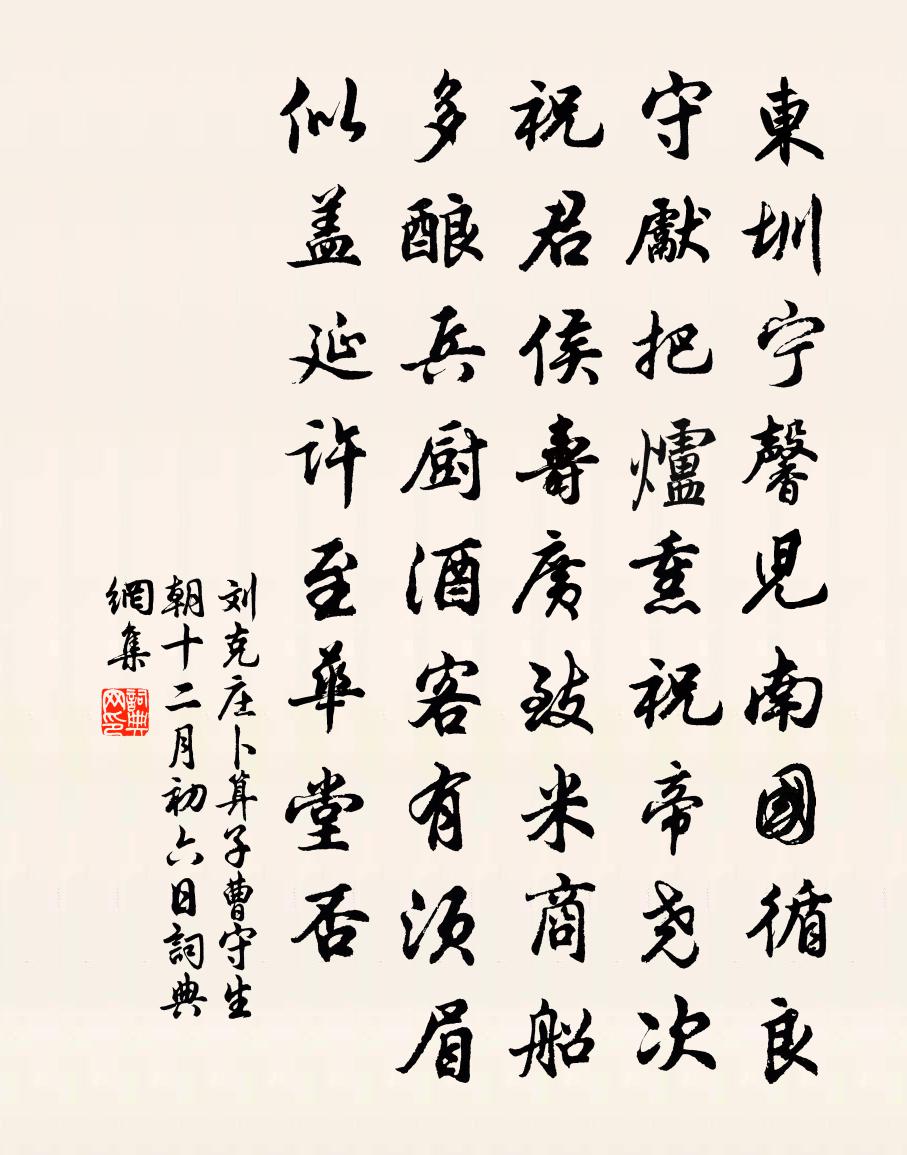 東圳宁馨児南國循良
守獻把爐熏祝帝尧次
祝君侯壽廣致米商船
多酿兵厨酒客有須眉
似盖延许至華堂否
刘克庄卜算子曹守生
朝十二月初六日詞典
網集
詞典网印